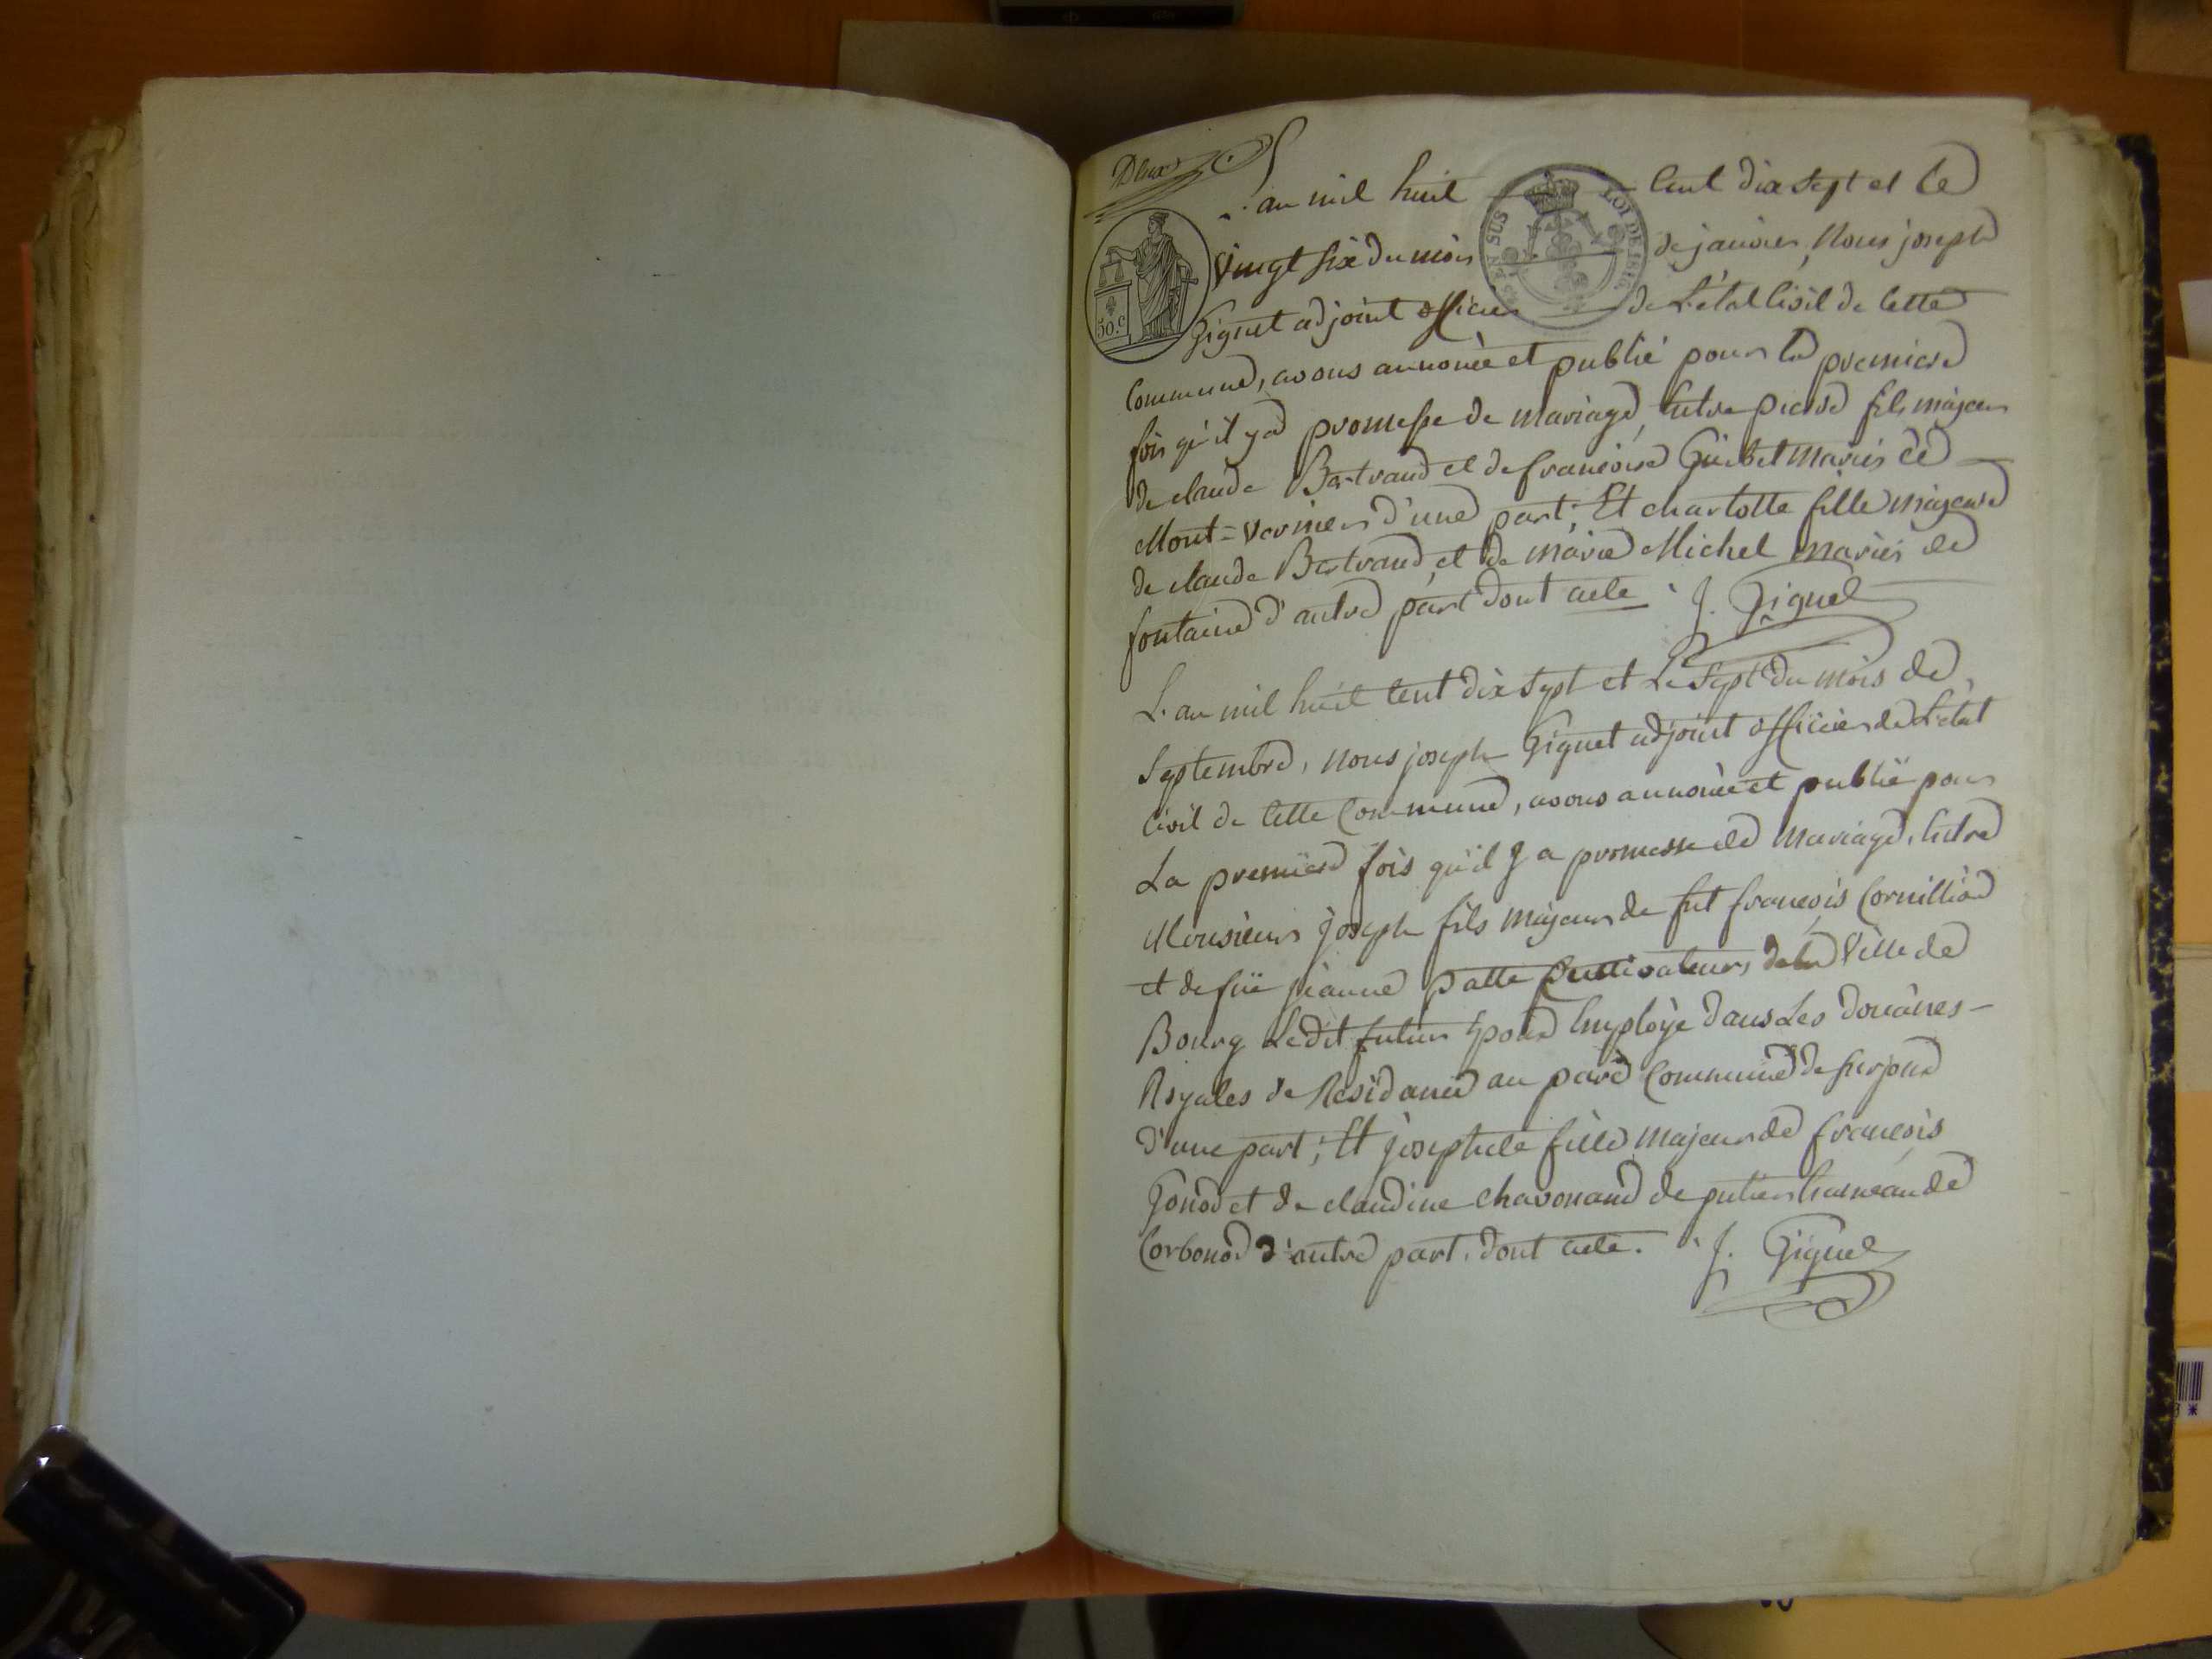 Deux
L'an mil huit cent dix sept et le
vingt six du mois de janvier, nous joseph
Giguet adjoint officier de L'état Civil de Cette
Commune, avons annoncé et publié pour la premiere
fois qu'il y a promesse de mariage, Entre pierre fils majeur
de claude Bertrand et de francoise Guerbet mariés de
Mont=vernier d'une part; Et charlotte fille majeure
de claude Bertrand, et de marie Michel mariés de
fontaine d'autre part dont acte. J. Giguet
L'an mil huit Cent dix Sept et Le Sept du mois de
Septembre, nous joseph Giguet adjoint officier de L'état
Civil de Cette Commune, avons annoncé et publié pour
La premiere fois qu'il y a promesse de mariage, Entre
Monsieur joseph fils majeur de fut francois Cornillion
et de füe jeanne patte Cultivateurs de la ville de
Bourg Ledit futur Epoux Employé dans Les Douanes
Royales de Residance au parc Commune de surjoux
d'une part; Et josephete fille majeur de francois
Gonod et de claudine Chavonand de hameau de
Corbonod d'autre part. dont acte. J. Giguet
50.C
EN SUS
LOI DE 1816